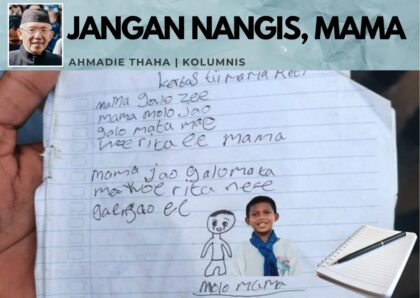 JANGAN NANGIS, MAMA
AHMADIE THAHA | KOLUMNIS
Kertas tii mama Reti
mama galo zee
mama molo jao
galo mata mae
woe rita ee mama
mama jao galo mata
mae woe rita ne'e
gae ngao ee
molo mama